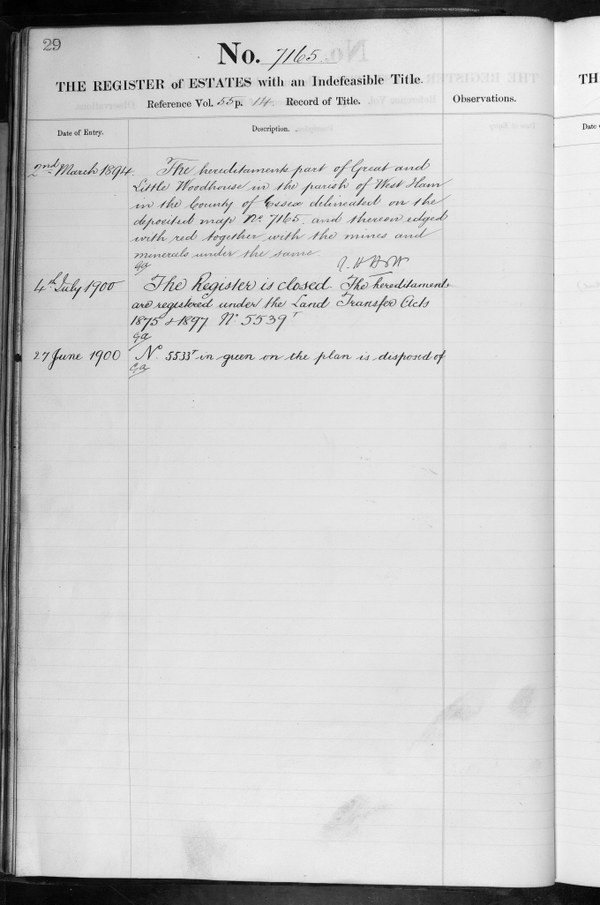 29
No. 7165
THE REGISTER of ESTATES with an Indefeasible Title.
Reference Vol. 55 p. 14 Record of Title.
Observations.
Date of Entry.
Description.
2nd March 1894
The hereditaments part of Great and
Little Woodhouse in the parish of West Ham
in the County of Essex delineated on the
deposited map No. 7165 and thereon edged
with red together with the mines and
minerals under the same.
4th July 1900
The Register is closed The hereditaments
are registered under the Land Transfer Acts
1875 & 1897 No 5539T
27 June 1900
No. 5533T in green on the plan is disposed of
TH
Date